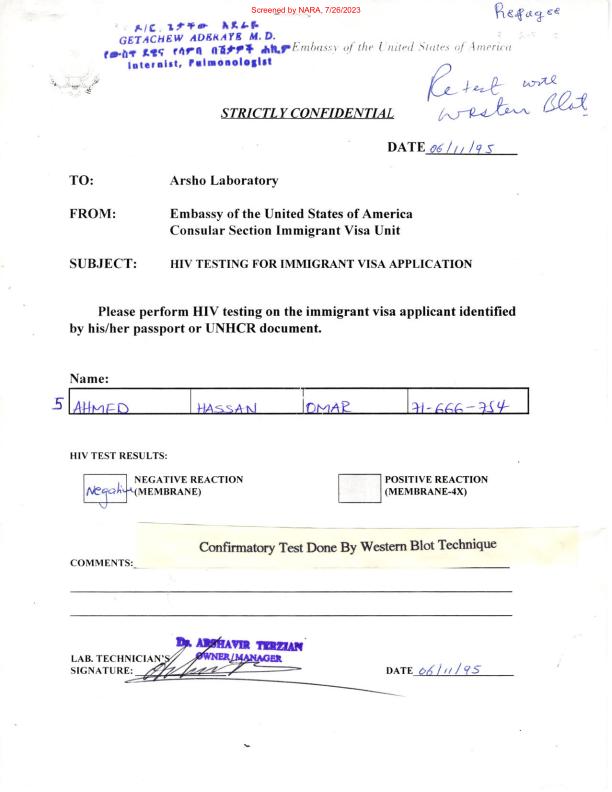 Screened by NARA, 7/26/2023
Refugee
ዶ/ር ጌታቸው አደራዬ
GETACHEW ADERAYE M.D.
የውስጥ ደዌና የሳምባ በሽታዎች ሐኪም
Internist, Pulmonologist
Embassy of the United States of America
Retest with
Western Blot
STRICTLY CONFIDENTIAL
DATE 06/11/95
TO: Arsho Laboratory
FROM: Embassy of the United States of America
Consular Section Immigrant Visa Unit
SUBJECT: HIV TESTING FOR IMMIGRANT VISA APPLICATION
Please perform HIV testing on the immigrant visa applicant identified
by his/her passport or UNHCR document.
Name:
5 AHMED HASSAN OMAR 71-666-754
HIV TEST RESULTS:
Negative NEGATIVE REACTION POSITIVE REACTION
(MEMBRANE) (MEMBRANE-4X)
Confirmatory Test Done By Western Blot Technique
COMMENTS:
Dr. ARSHAVIR TERZIAN
OWNER/MANAGER
LAB. TECHNICIAN'S
SIGNATURE: DATE 06/11/95